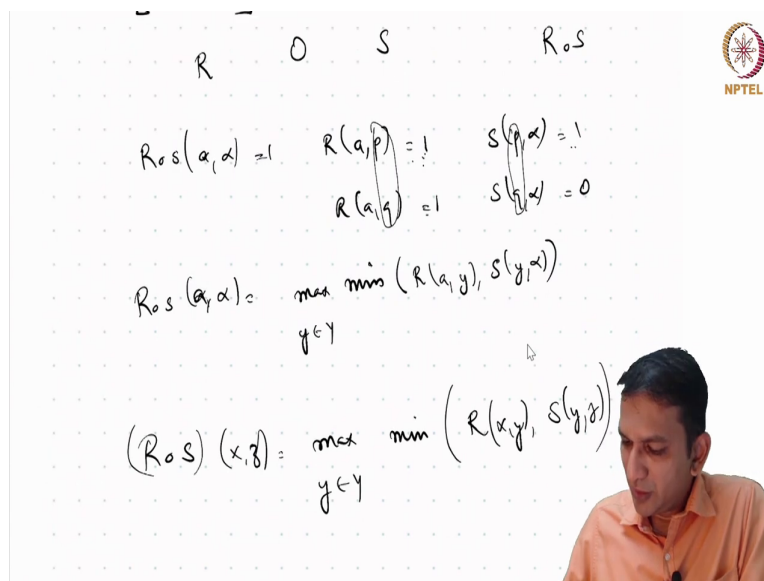 R O S RoS
NPTEL
RoS(a,α) =1 R(a,p) = 1 S(p,α) = 1
R(a,q) = 1 S(q,α) = 0
RoS(a,α) = max min (R(a,y), S(y,α))
y∈Y
(RoS)(x,z) = max min (R(x,y), S(y,z))
y∈Y